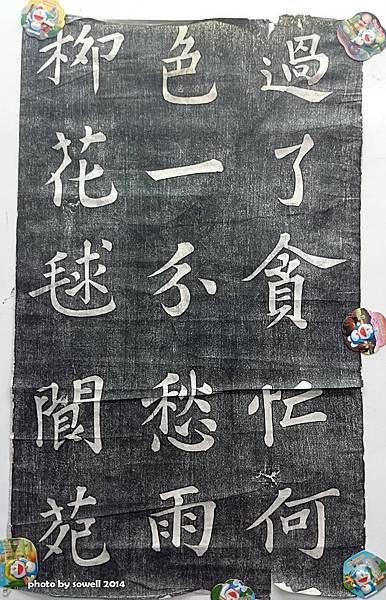 過了貪忙何
色一分愁雨
柳花毬閬苑
photo by sowell 2014